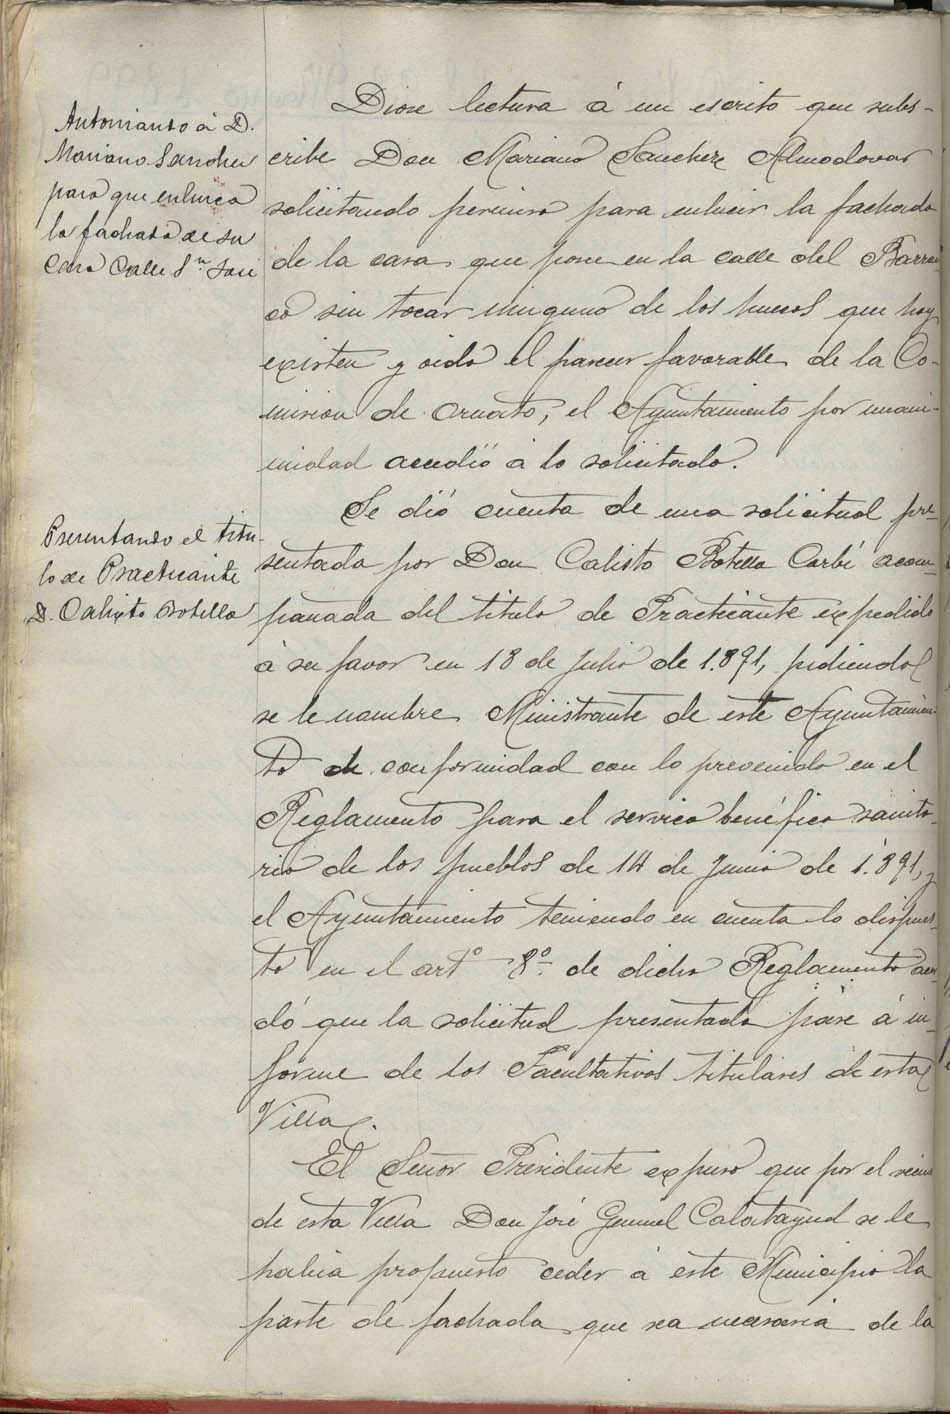 Autorizando á D.
Mariano Sanchez
para que enluzca
la fachada de su
Casa Calle Sn. José
Diose lectura á un escrito que subs-
cribe Don Mariano Sanchez Almodovar
solicitando permiso para enlucir la fachada
de la casa que posee en la calle del Barran
co sin tocar ninguno de los huecos que hoy
existen y oido el parecer favorable de la Co-
mision de Ornato, el Ayuntamiento por unani-
midad accedió á lo solicitado.
Presentando el titu-
lo de Practicante
D. Calixto Botella
Se dió cuenta de una solicitud pre-
sentada por Don Calisto Botella Carbí acom-
pañada del titulo de Practicante expedido
á su favor en 18 de Julio de 1.891, pidiendo
se le nombre Ministrante de este Ayuntamien-
to de conformidad con lo prevenido en el
Reglamento para el servicio benéfico sanita-
rio de los pueblos de 14 de Junio de 1.891, y
el Ayuntamiento teniendo en cuenta lo dispues-
to en el artº 8º. de dicho Reglamento acor-
dó que la solicitud presentada pase á in-
forme de los Facultativos titulares de esta
Villa.
El Señor Presidente expuso que por el vecino
de esta Villa Don José Calatayud se le
habia propuesto ceder á este Municipio la
parte de fachada que sea necesaria de la